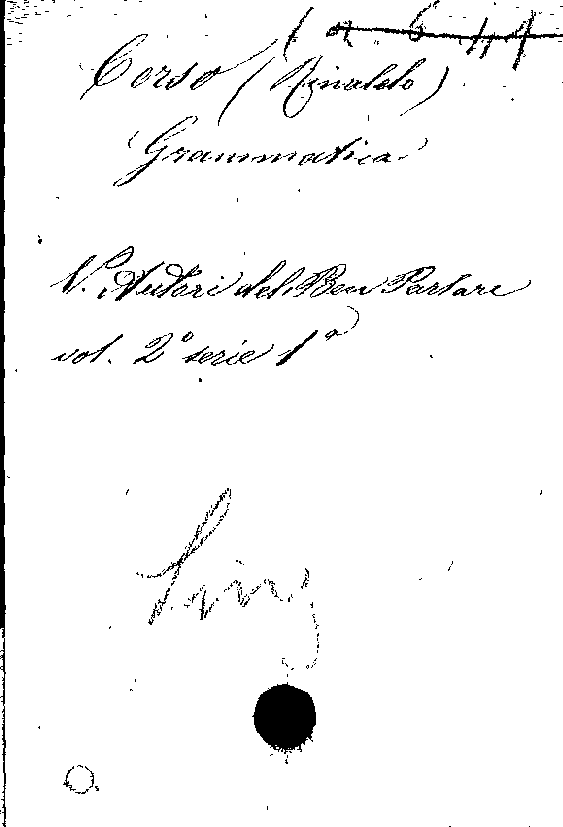 Corso (Rinaldo)
Grammatica
V. Autori del Ben Parlare
vol. 2º serie 1ª
Ling